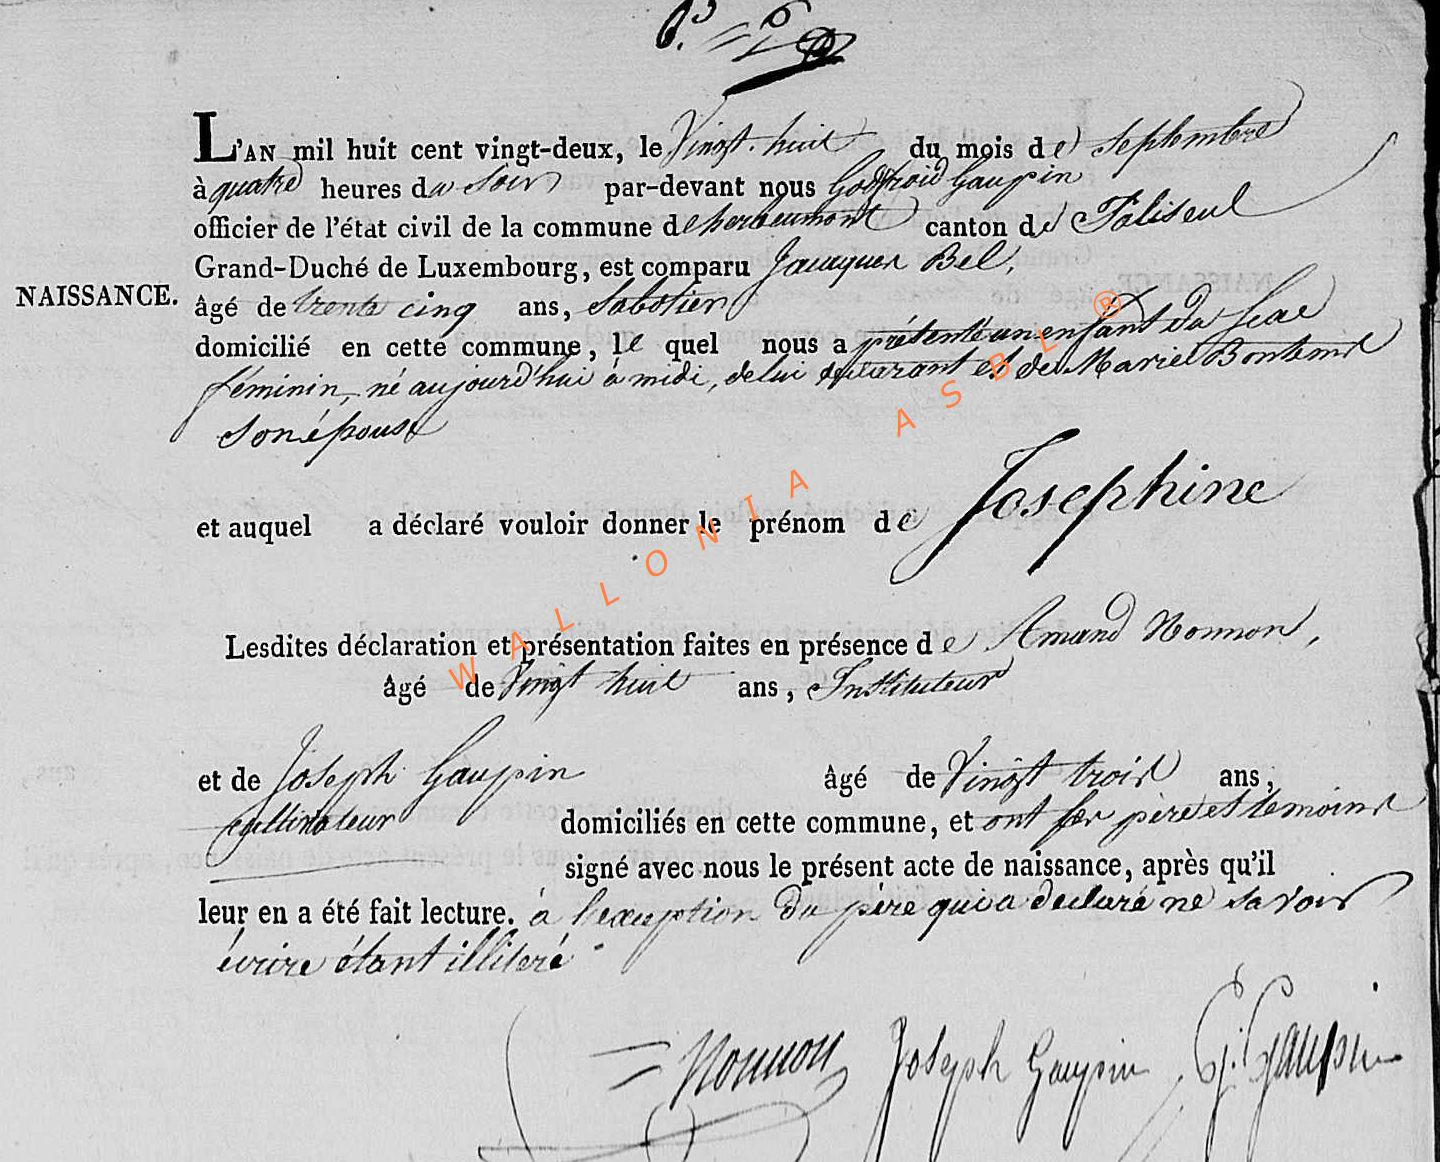 L'AN mil huit cent vingt-deux, le Vingt-huit du mois de septembre
à quatre heures du soir par-devant nous Godfroid Gaupin
officier de l'état civil de la commune de herbeumont canton de Paliseul
Grand-Duché de Luxembourg, est comparu Jacques Bel,
NAISSANCE.
âgé de trente cinq ans, Sabotier
domicilié en cette commune, le quel nous a présenté un enfant du sexe
féminin, né aujourd'hui à midi, de lui déclarant et de Marie Bontems
son épouse
et auquel a déclaré vouloir donner le prénom de Josephine
Lesdites déclaration et présentation faites en présence de Amand Nonnon,
âgé de Vingt huit ans, Instituteur
et de Joseph Gaupin âgé de Vingt trois ans,
cultivateur domiciliés en cette commune, et ont les père et temoins
signé avec nous le présent acte de naissance, après qu'il
leur en a été fait lecture. à l'exception du père qui a declaré ne savoir
écrire étant illiteré
Nonnon Joseph Gaupin G. Gaupin
WALLONIA ASBL ®